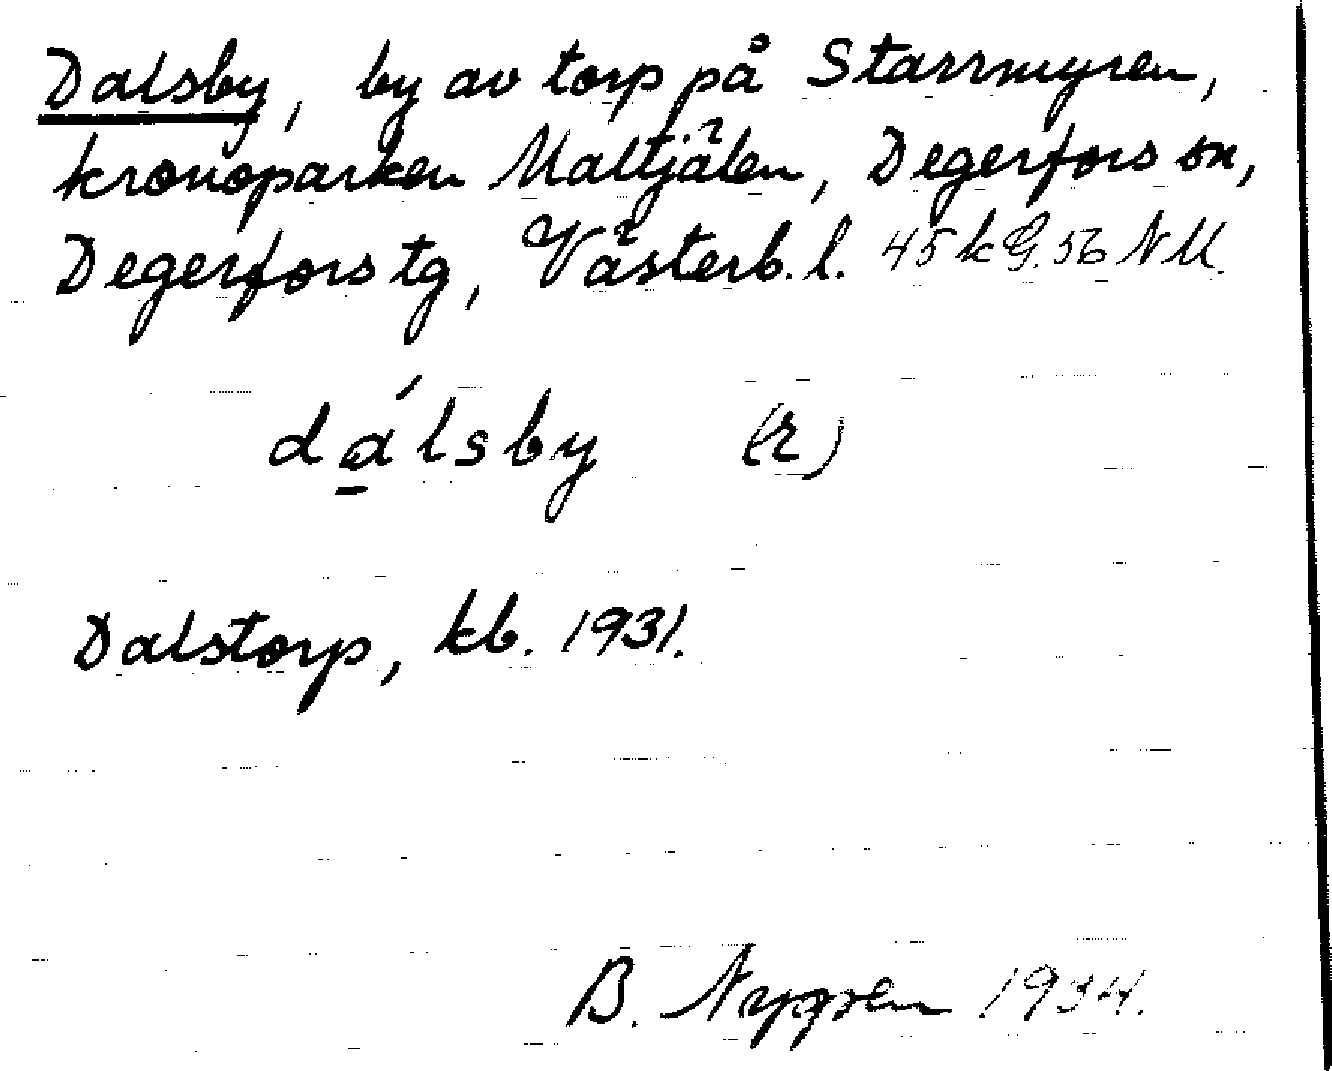 Dalsby, by av torp på Starrmyren,
kronoparken Maltjälen, Degerfors sn,
Degerfors tg, Västerb. l. 45 k G. 56 NU.
dálsby (r)
Dalstorp, kb. 1931.
B. Nygren 1934.